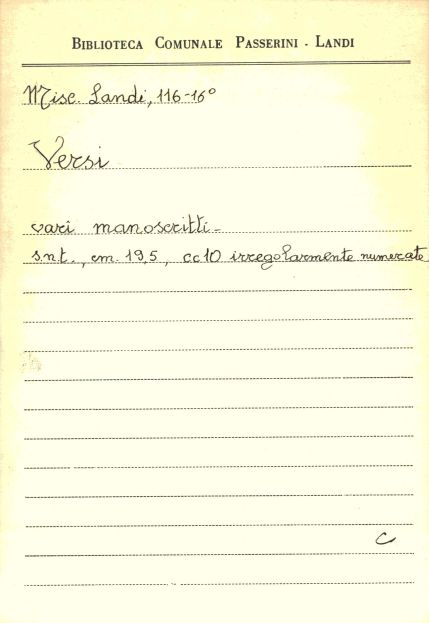 BIBLIOTECA COMUNALE PASSERINI - LANDI
Misc. Landi, 116-16°
Versi
vari manoscritti-
s.n.t., cm. 19,5, cc 10 irregolarmente numerate
C